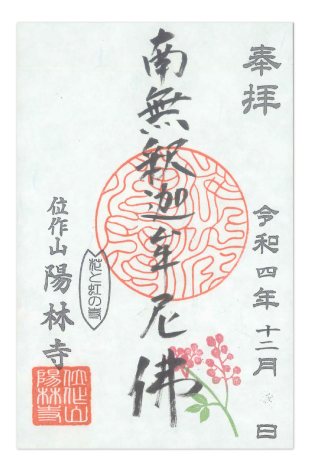 奉拝
令和四年十二月 日
南無釈迦牟尼佛
花と虹の寺
位作山
陽林寺
位作山
陽林寺